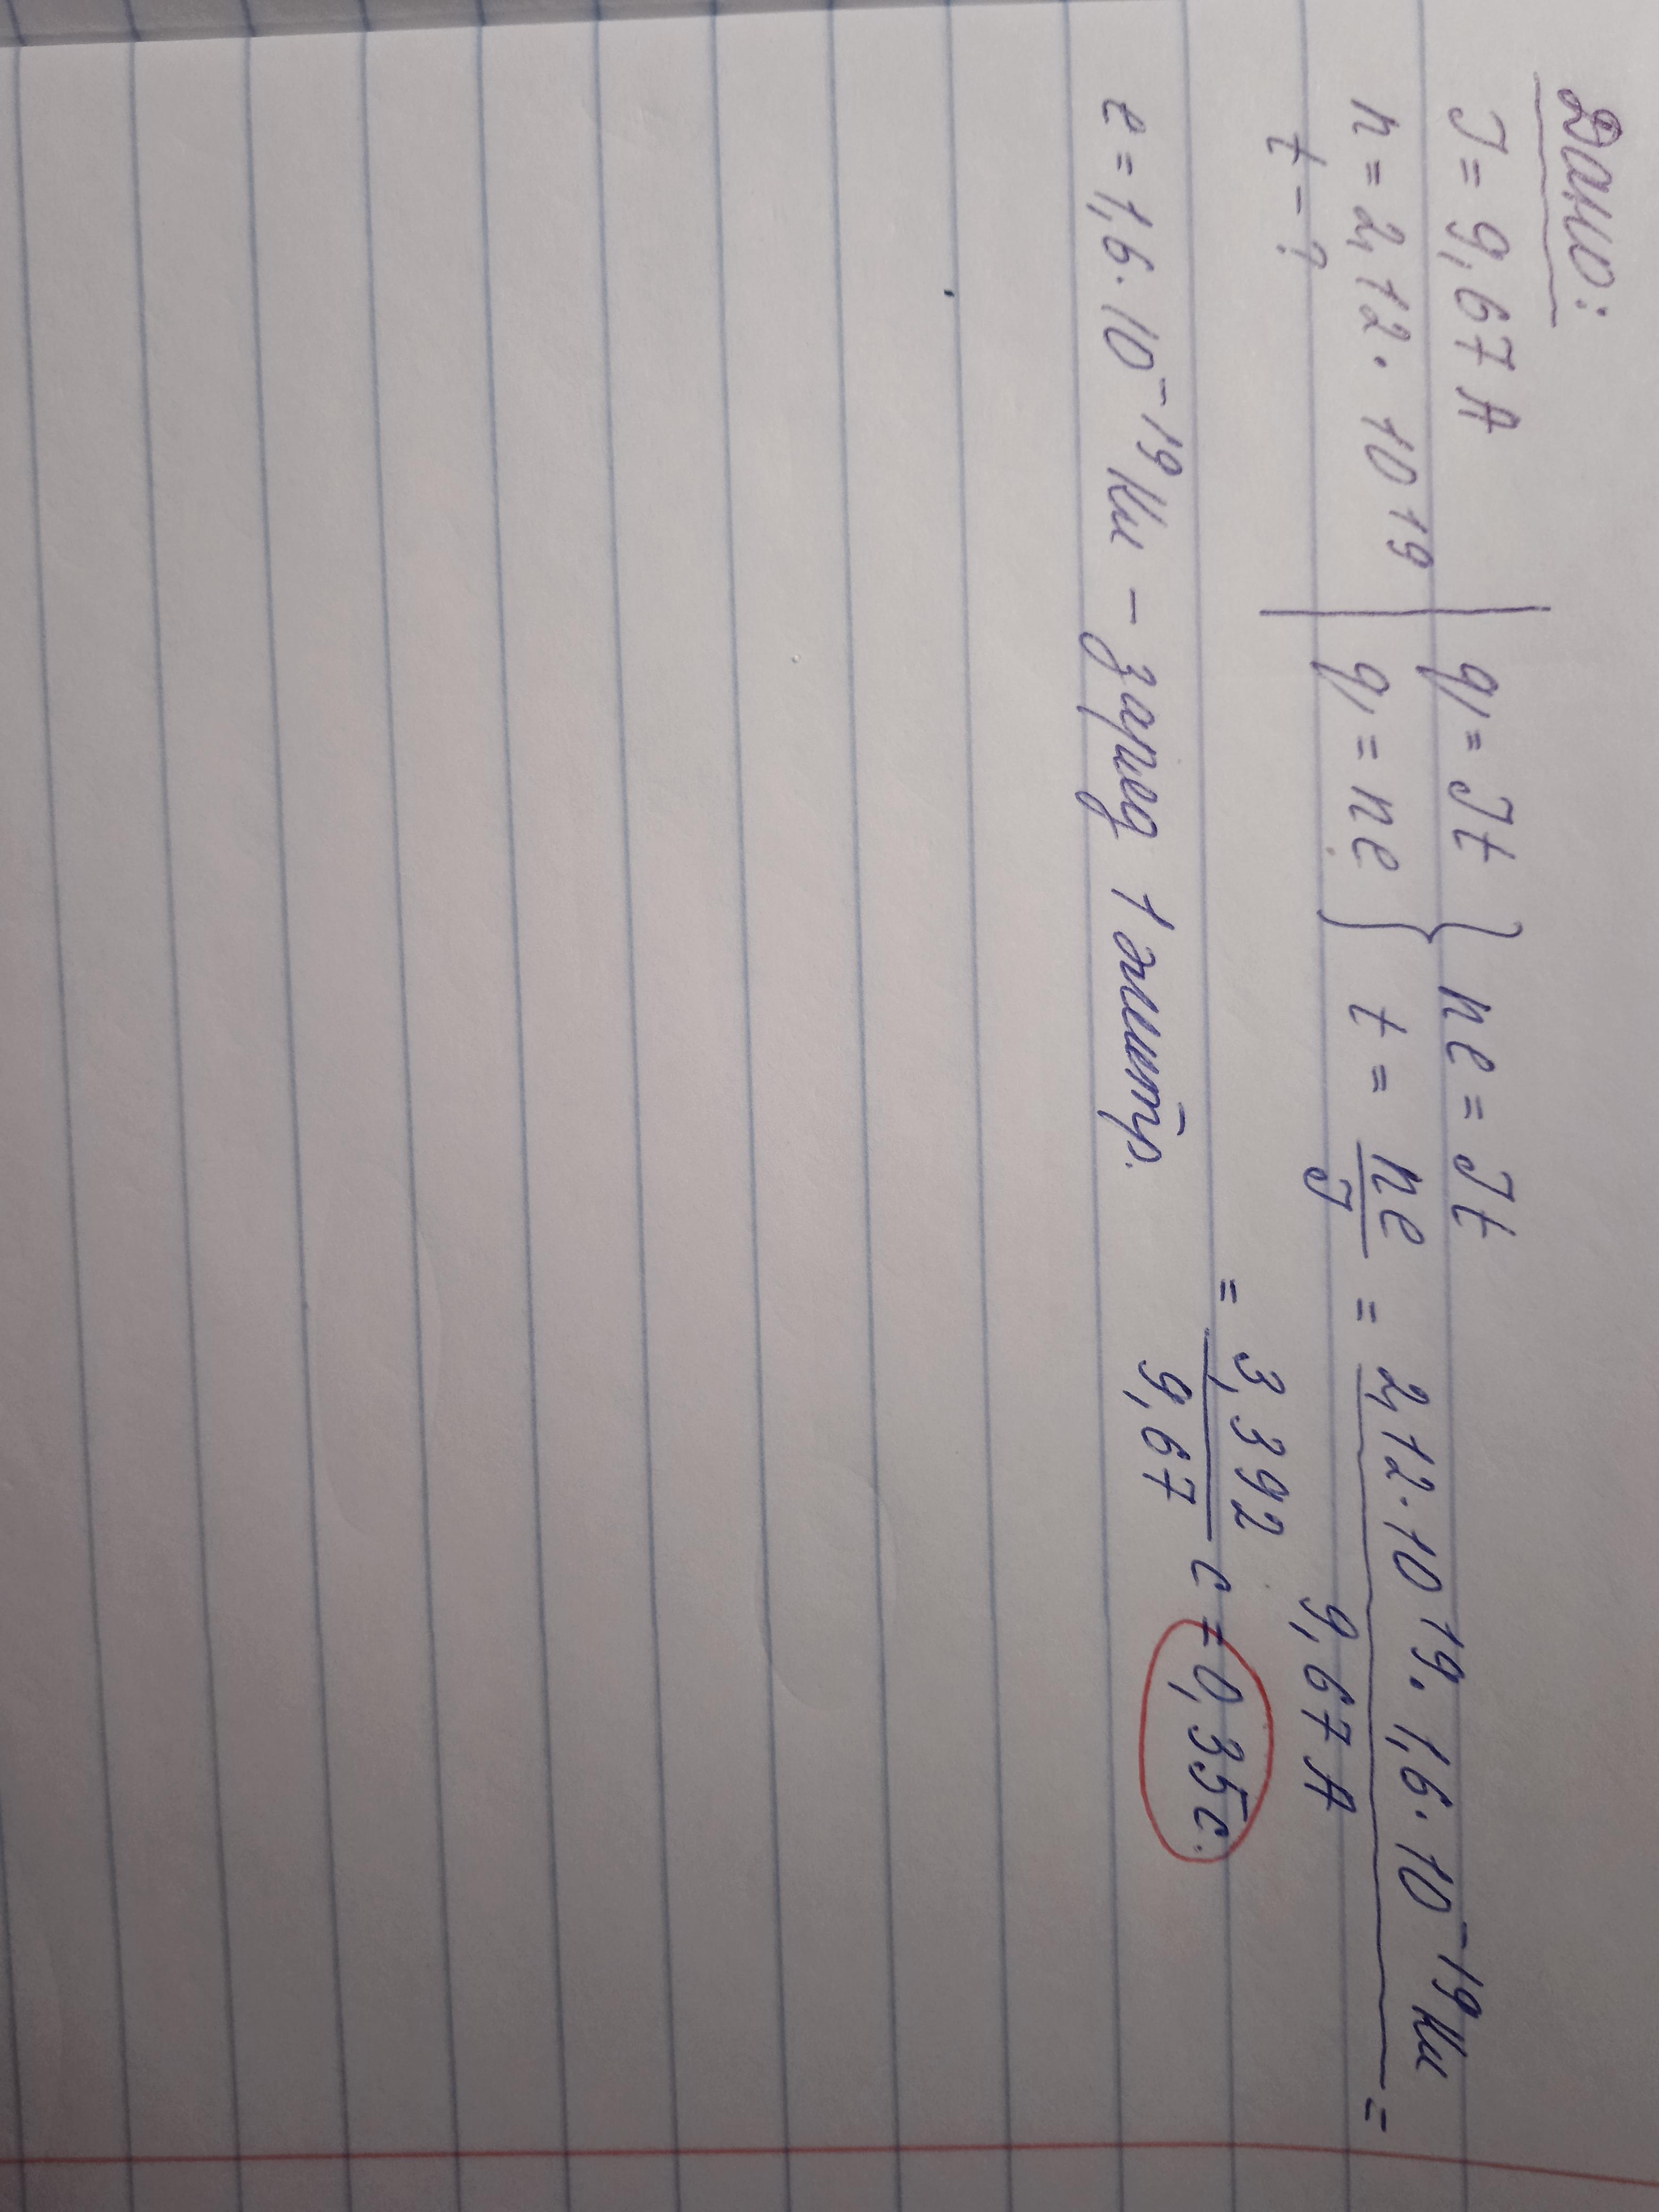 Дано:
J = 9,67 А
n = 2,12 · 10¹⁹
t - ?
q = Jt
q = ne
ne = Jt
t = ne/J = 2,12 · 10¹⁹ · 1,6 · 10⁻¹⁹ Кл / 9,67 А =
= 3,392/9,67 с = 0,35 с.
e = 1,6 · 10⁻¹⁹ Кл - заряд 1 электр.